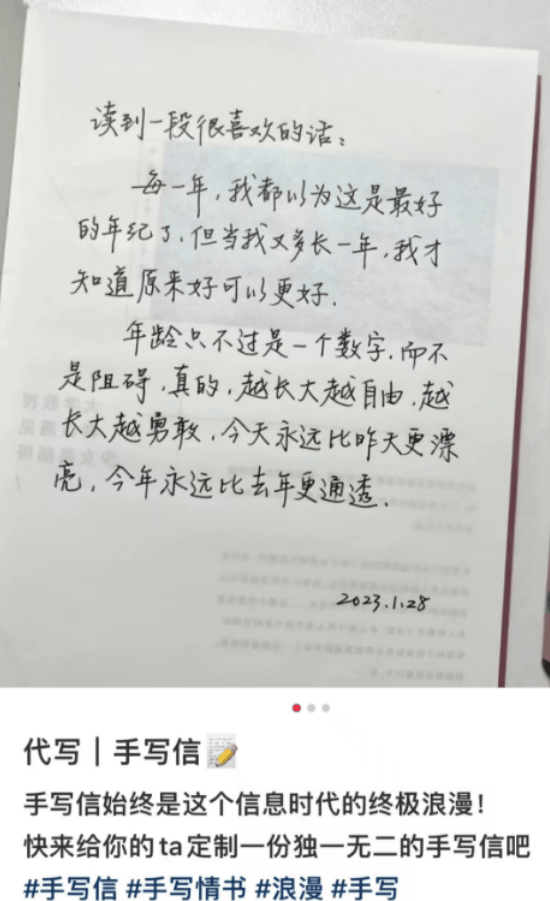 读到一段很喜欢的话：
每一年，我都以为这是最好
的年纪了，但当我又多长一年，我才
知道原来好可以更好．
年龄只不过是一个数字，而不
是阻碍，真的，越长大越自由，越
长大越勇敢，今天永远比昨天更漂
亮，今年永远比去年更通透．
2023.1.28
代写｜手写信📝
手写信始终是这个信息时代的终极浪漫！
快来给你的ta定制一份独一无二的手写信吧
#手写信 #手写情书 #浪漫 #手写